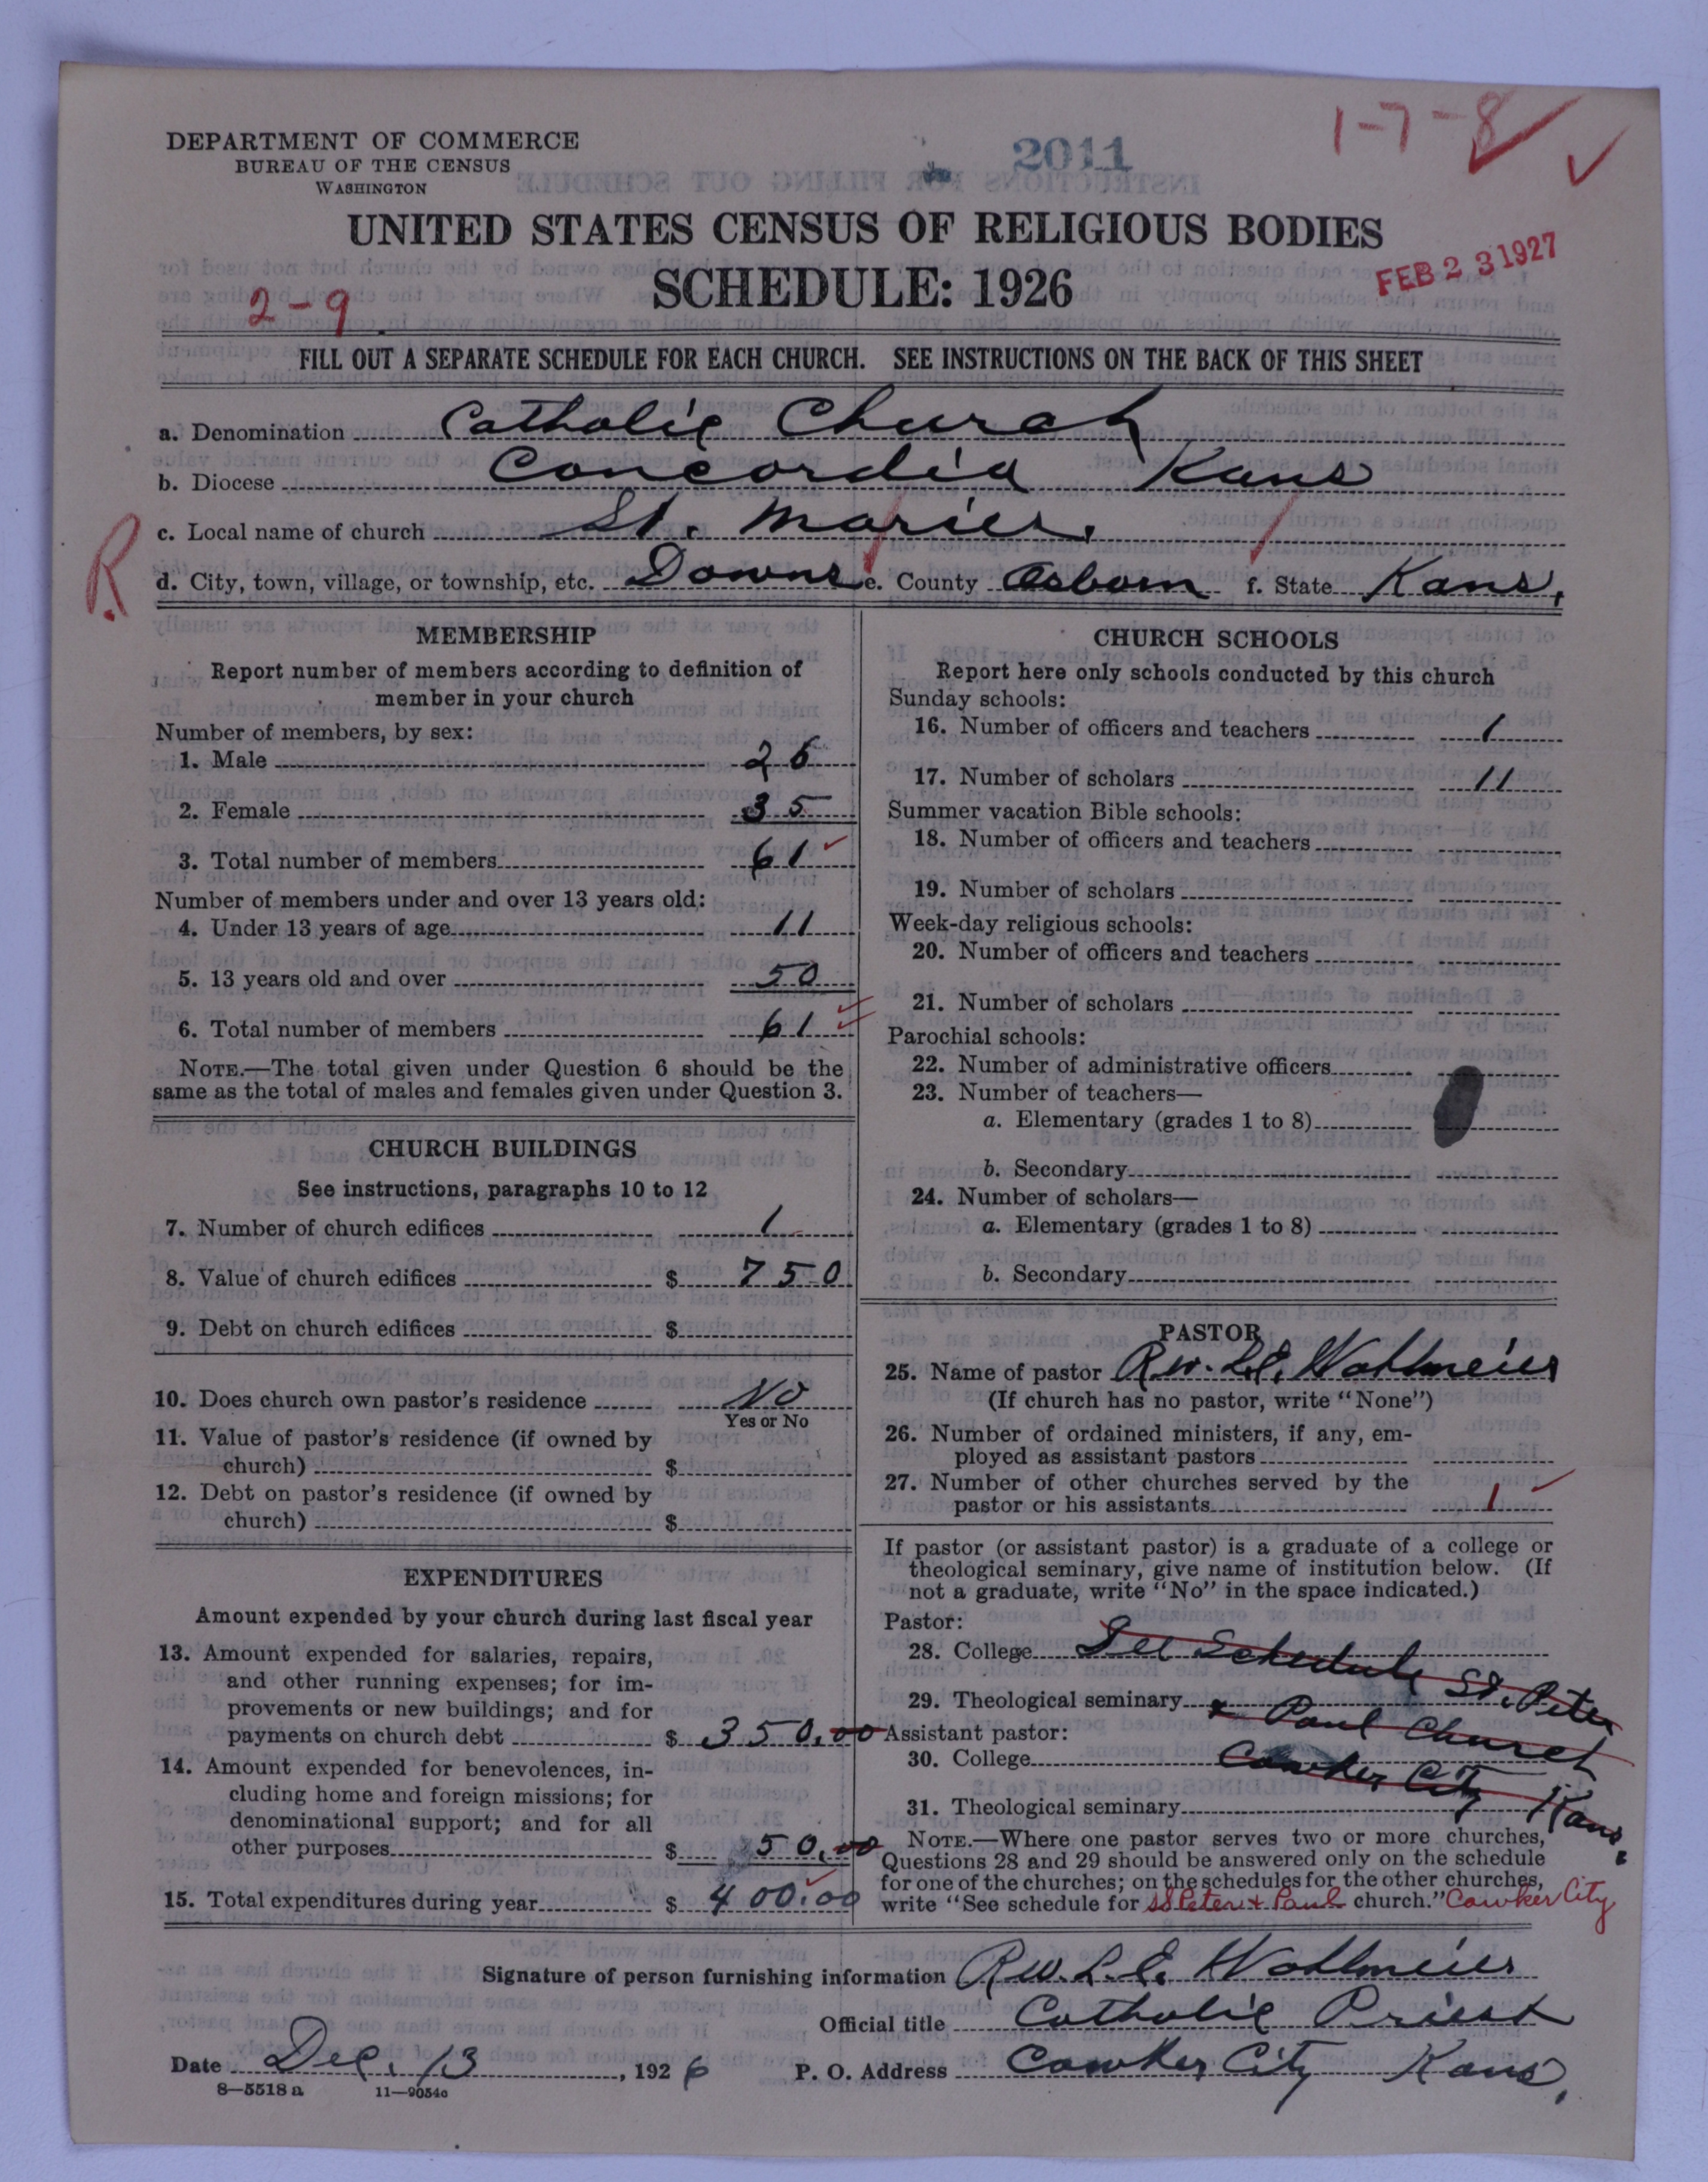 DEPARTMENT OF COMMERCE
BUREAU OF THE CENSUS
WASHINGTON
2011
1-7-8
UNITED STATES CENSUS OF RELIGIOUS BODIES
SCHEDULE: 1926
FEB 23 1927
2-9
FILL OUT A SEPARATE SCHEDULE FOR EACH CHURCH. SEE INSTRUCTIONS ON THE BACK OF THIS SHEET
a. Denomination Catholic Church
b. Diocese Concordia Kans
c. Local name of church St. Maries.
R.
d. City, town, village, or township, etc. Downs e. County Osborn f. State Kans.
MEMBERSHIP
Report number of members according to definition of
member in your church
Number of members, by sex:
1. Male 26
2. Female 35
3. Total number of members 61
Number of members under and over 13 years old:
4. Under 13 years of age 11
5. 13 years old and over 50
6. Total number of members 61
NOTE.—The total given under Question 6 should be the
same as the total of males and females given under Question 3.
CHURCH BUILDINGS
See instructions, paragraphs 10 to 12
7. Number of church edifices 1
8. Value of church edifices $ 750
9. Debt on church edifices $
10. Does church own pastor's residence No
Yes or No
11. Value of pastor's residence (if owned by
church) $
12. Debt on pastor's residence (if owned by
church) $
EXPENDITURES
Amount expended by your church during last fiscal year
13. Amount expended for salaries, repairs,
and other running expenses; for im-
provements or new buildings; and for
payments on church debt $ 350.00
14. Amount expended for benevolences, in-
cluding home and foreign missions; for
denominational support; and for all
other purposes $ 50.00
15. Total expenditures during year $ 400.00
CHURCH SCHOOLS
Report here only schools conducted by this church
Sunday schools:
16. Number of officers and teachers 1
17. Number of scholars 11
Summer vacation Bible schools:
18. Number of officers and teachers
19. Number of scholars
Week-day religious schools:
20. Number of officers and teachers
21. Number of scholars
Parochial schools:
22. Number of administrative officers
23. Number of teachers—
a. Elementary (grades 1 to 8)
b. Secondary
24. Number of scholars—
a. Elementary (grades 1 to 8)
b. Secondary
PASTOR
25. Name of pastor Rev. L.E. Wollmeier
(If church has no pastor, write "None")
26. Number of ordained ministers, if any, em-
ployed as assistant pastors
27. Number of other churches served by the
pastor or his assistants 1
If pastor (or assistant pastor) is a graduate of a college or
theological seminary, give name of institution below. (If
not a graduate, write "No" in the space indicated.)
Pastor:
28. College See Schedule St. Peter
29. Theological seminary & Paul Church
Assistant pastor:
30. College Cawker City Kans.
31. Theological seminary
NOTE.—Where one pastor serves two or more churches,
Questions 28 and 29 should be answered only on the schedule
for one of the churches; on the schedules for the other churches,
write "See schedule for SS Peter & Paul church." Cawker City
Signature of person furnishing information Rev. L. E. Wollmeier
Official title Catholic Priest
Date Dec. 13, 1926 P. O. Address Cawker City Kans.
8—5518 a 11—9054a